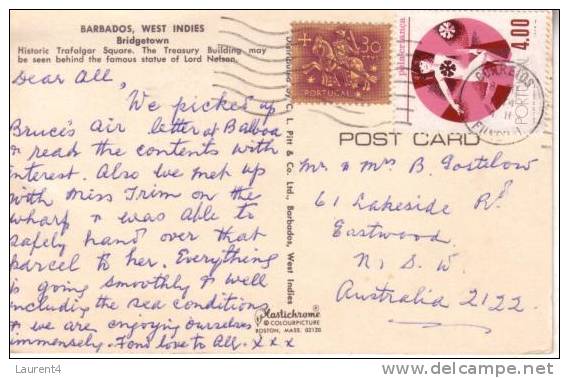 BARBADOS, WEST INDIES
Bridgetown
Historic Trafalgar Square. The Treasury Building may
be seen behind the famous statue of Lord Nelson.
Dear All,
We picked up
Bruce's Air letter at Balboa
& read the contents with
interest. Also we met up
with Miss Trim on the
wharf & was able to
safely hand over that
parcel to her. Everything
is going smoothly & well
including the sea conditions
& we are enjoying ourselves
immensely. Fond love to All. x x x
Distributed by C. L. Pitt & Co. Ltd., Barbados, West Indies
Plastichrome ®
© COLOURPICTURE
BOSTON, MASS. 02130
30
PORTUGAL
4.00
PORTUGAL
CORREIOS
POST CARD
Mr & Mrs B. Gostelow
61 Lakeside Rd
Eastwood
N. S. W.
Australia 2122.
Laurent4
http://www.delcampe.net